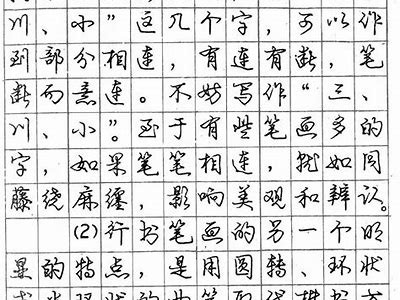 川、小”这几个字，可以作
到部分相连，有连有断，笔
断而意连。不妨写作“三、
川、小”。至于有些笔画多的
字，如果笔笔相连，就如同
藤绕麻缠，影响美观和辨认。
(2)行书笔画的另一个明
显的特点，是用圆转、环状